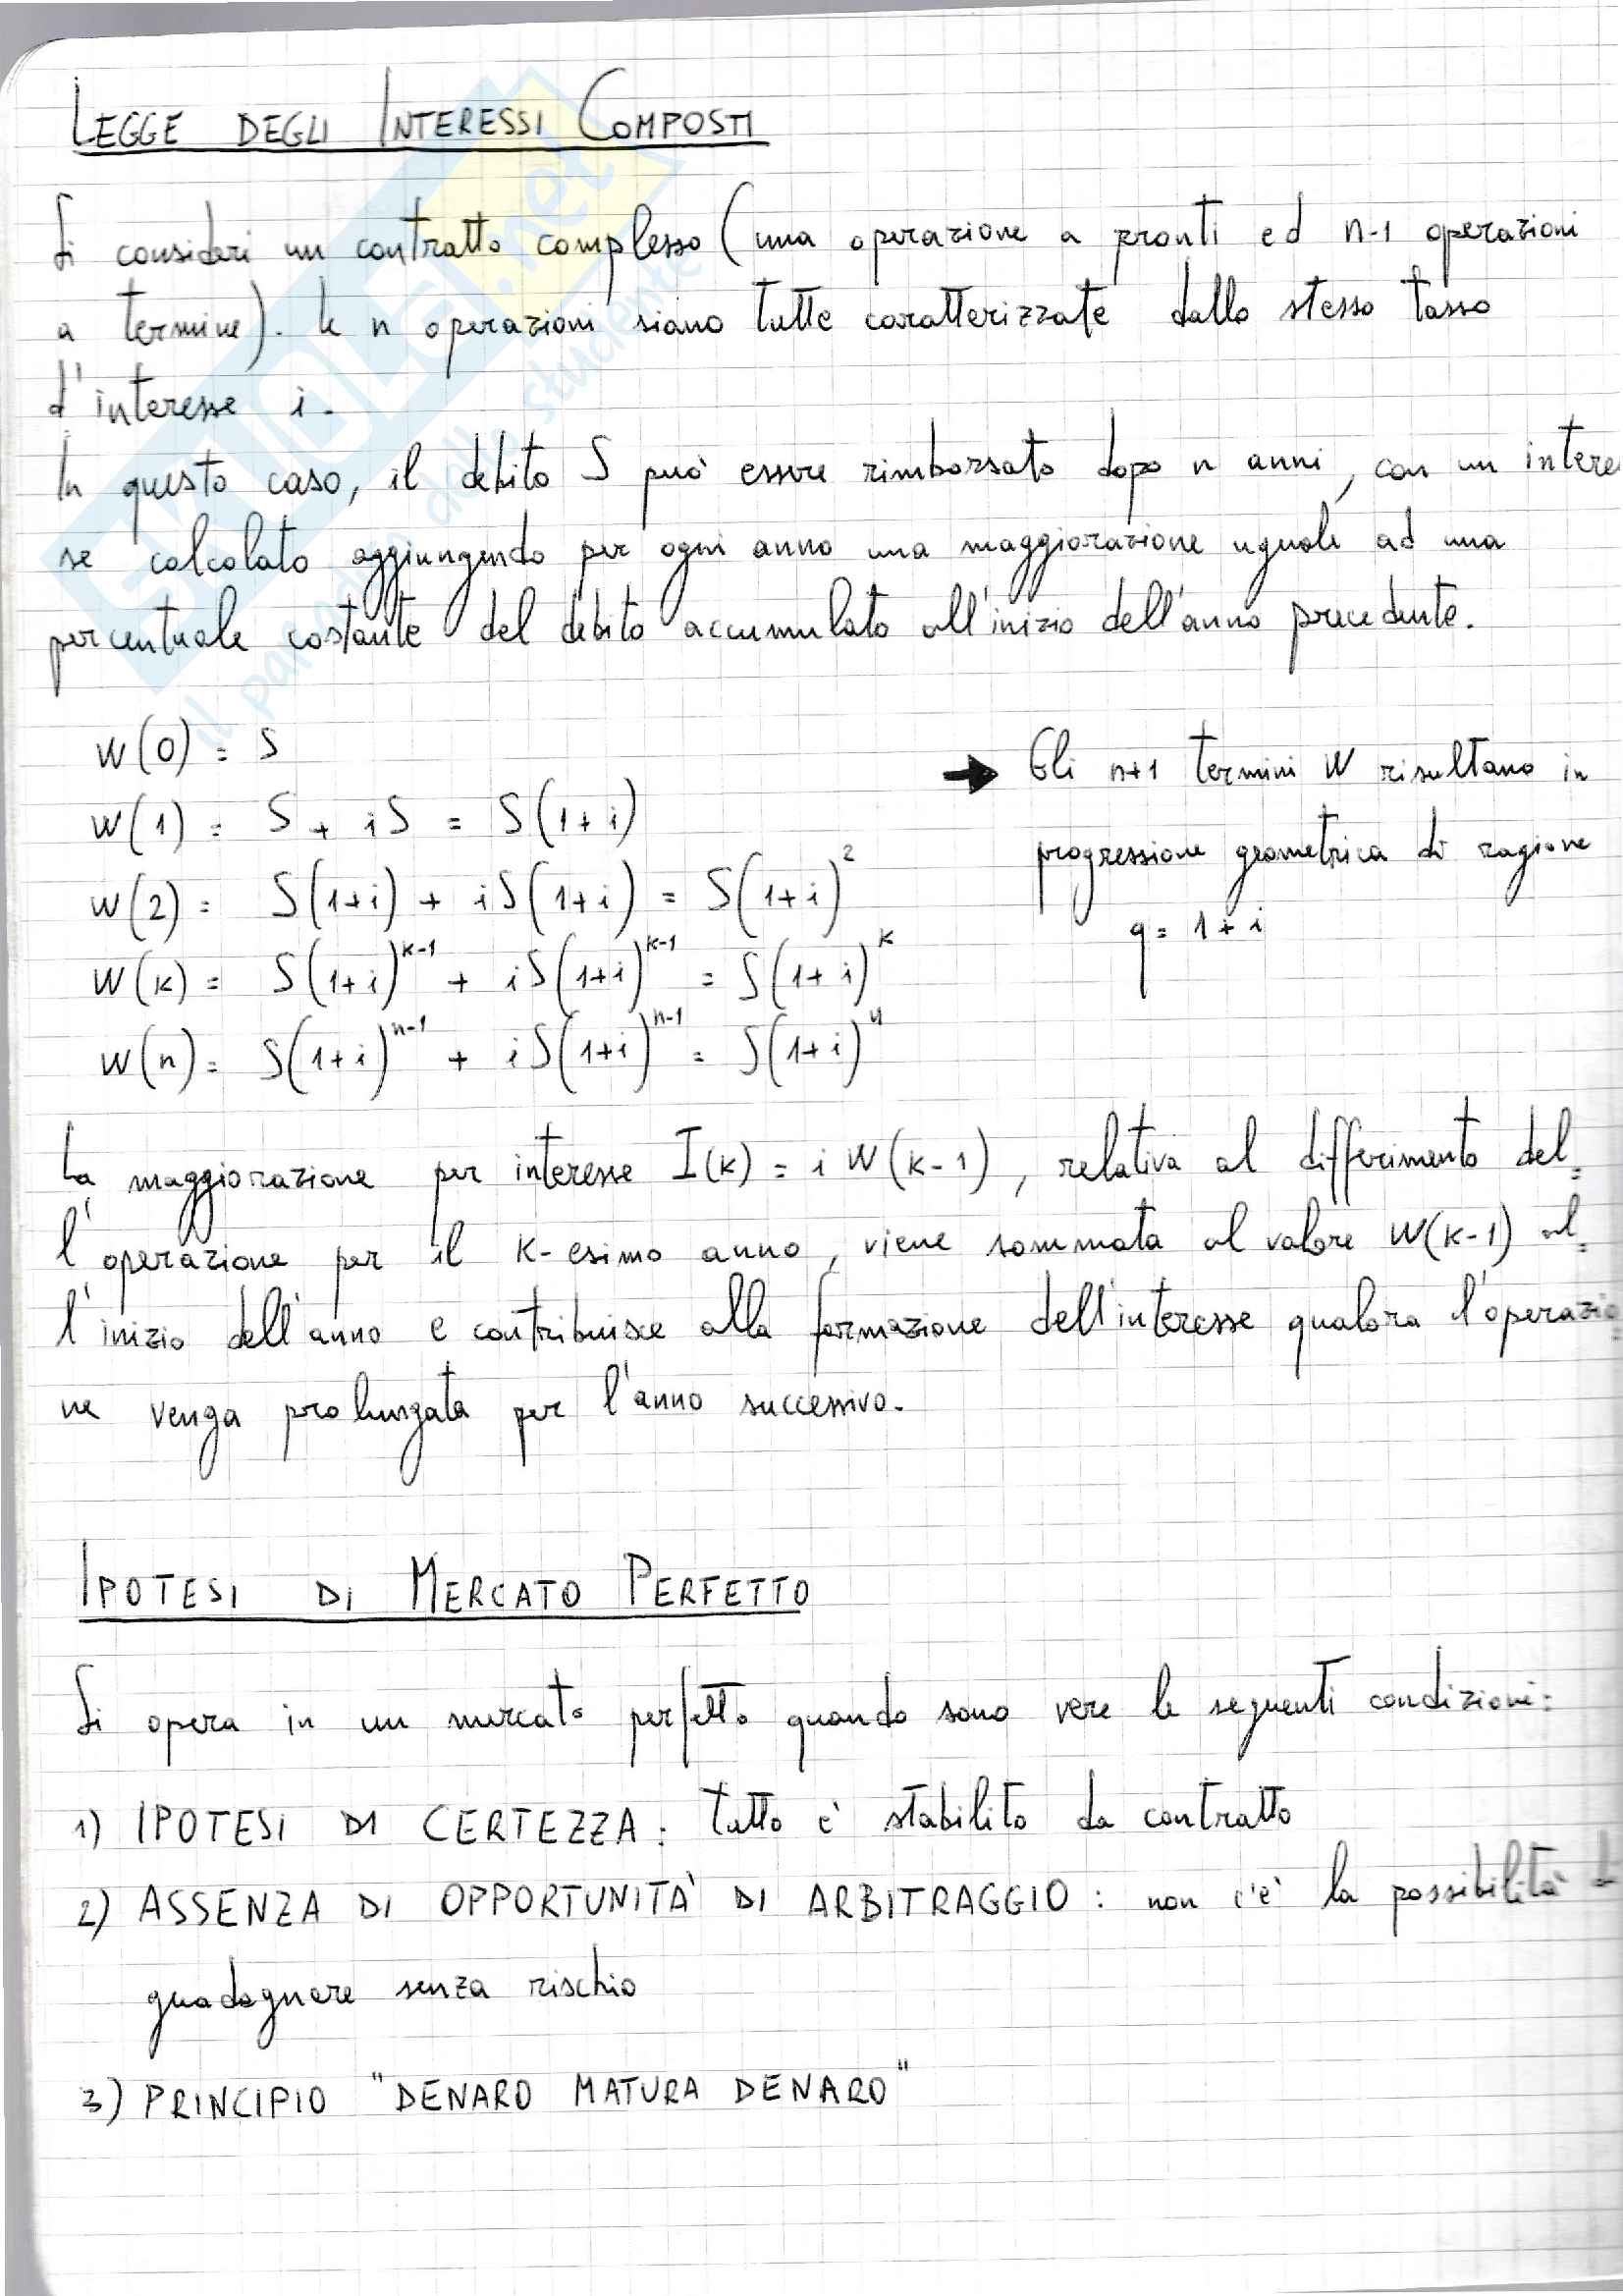 LEGGE DEGLI INTERESSI COMPOSTI
Si consideri un contratto complesso (una operazione a pronti ed n-1 operazioni
a termine). Le n operazioni siano tutte caratterizzate dallo stesso tasso
d'interesse i.
In questo caso, il debito S può essere rimborsato dopo n anni, con un interes
se calcolato aggiungendo per ogni anno una maggiorazione uguale ad una
percentuale costante del debito accumulato all'inizio dell'anno precedente.
W(0) = S
→ Gli n+1 termini W risultano in
W(1) = S + iS = S(1+i)
progressione geometrica di ragione
W(2) = S(1+i) + iS(1+i) = S(1+i)²
q = 1+i
W(k) = S(1+i)^{k-1} + iS(1+i)^{k-1} = S(1+i)^k
W(n) = S(1+i)^{n-1} + iS(1+i)^{n-1} = S(1+i)^n
La maggiorazione per interesse I(k) = i W(k-1), relativa al differimento del=
l'operazione per il k-esimo anno, viene sommata al valore W(k-1) al=
l'inizio dell'anno e contribuisce alla formazione dell'interesse qualora l'operazio=
ne venga prolungata per l'anno successivo.
IPOTESI DI MERCATO PERFETTO
Si opera in un mercato perfetto quando sono vere le seguenti condizioni:
1) IPOTESI DI CERTEZZA: tutto è stabilito da contratto
2) ASSENZA DI OPPORTUNITÀ DI ARBITRAGGIO: non c'è la possibilità di
guadagnare senza rischio
3) PRINCIPIO "DENARO MATURA DENARO"